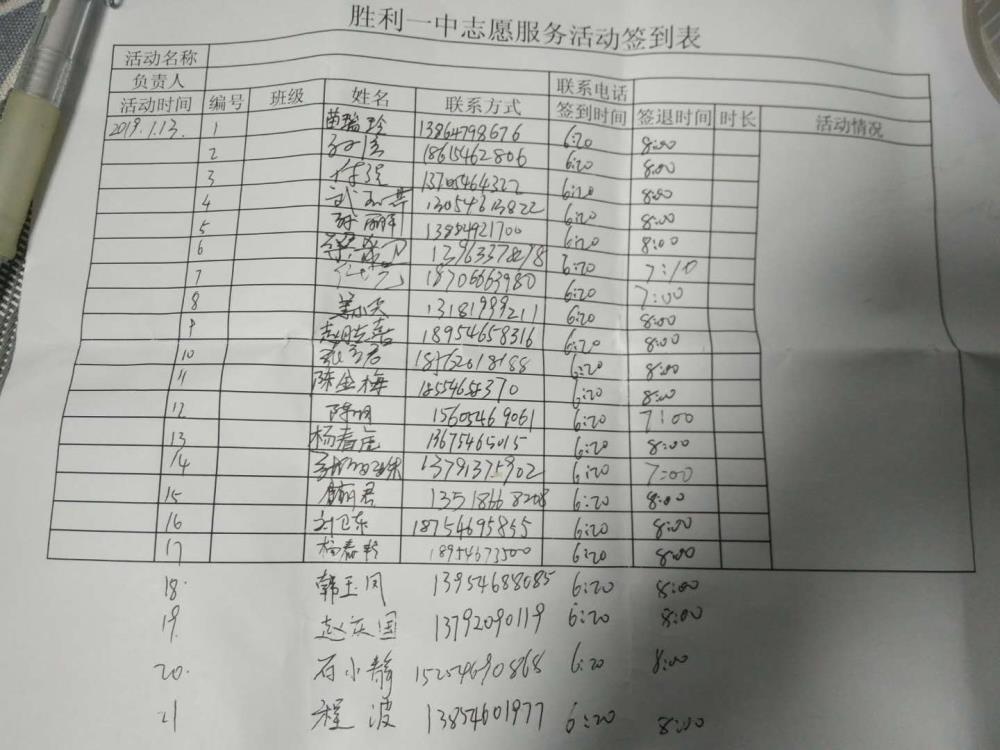 胜利一中志愿服务活动签到表
活动名称
负责人 联系电话
活动时间 编号 班级 姓名 联系方式 签到时间 签退时间 时长 活动情况
2019.1.13. 1 苗瑞玲 13864798676 6:20 8:00
2 18615462806 6:20 8:00
3 13705464322 6:20 8:00
4 13054613822 6:20 8:00
5 6:20 8:00
6 6:20 7:10
7 18706663980 6:20 7:00
8 13181999211 6:20 8:00
9 18954658316 6:20 8:00
10 6:20 8:00
11 陈金梅 6:20 8:00
12 陈明 15605469061 6:20 7:00
13 13675465015 6:20 8:00
14 13791375902 6:20 7:00
15 13518668208 6:20 8:00
16 刘卫东 18754695855 6:20 8:00
17 杨春玲 18954673500 6:20 8:00
18. 韩玉凤 13954688085 6:20 8:00
19. 赵庆国 13792090119 6:20 8:00
20. 石小静 15254690868 6:20 8:00
21 程波 13854601977 6:20 8:00